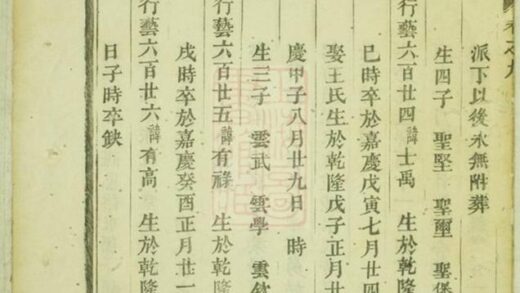 派下以後永無附葬
生四子　聖堅　聖璽　聖
行藝六百廿四諱士禹　生於乾隆
巳時卒於嘉慶戊寅七月廿四
娶王氏生於乾隆戊子正月廿
慶甲子八月廿九日　時
生三子　雲武　雲學　雲
行藝六百廿五諱有祿　生於乾
戌時卒於嘉慶癸酉正月廿一
行藝六百廿六諱有高　生於乾隆
日子時卒缺